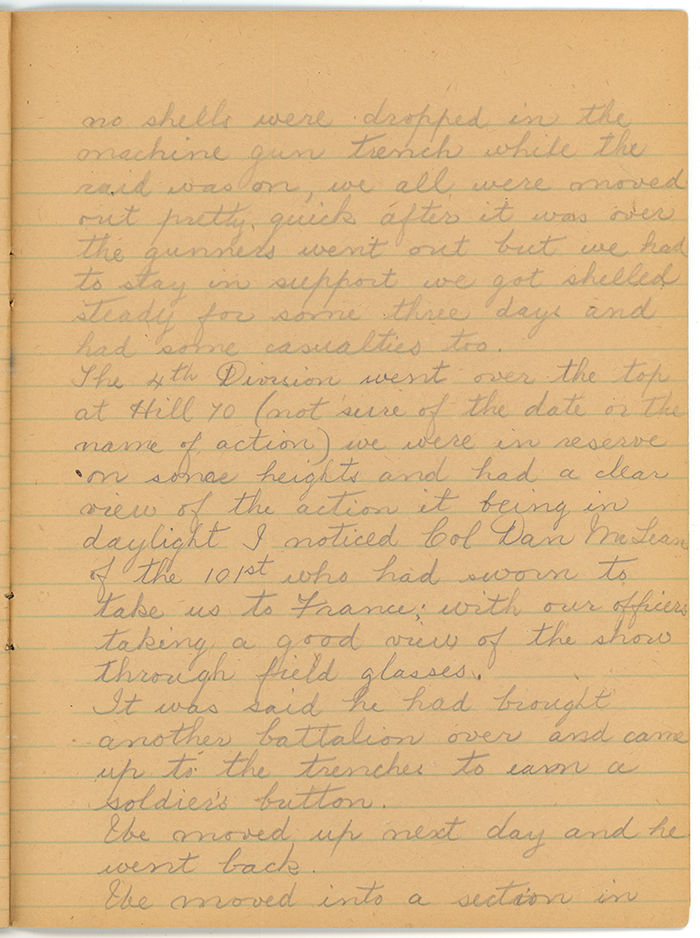 no shells were dropped in the
machine gun trench while the
raid was on, we all were moved
out pretty quick after it was over
the gunners went out but we had
to stay in support we got shelled
steady for some three days and
had some casualties too.
The 4th Division went over the top
at Hill 70 (not sure of the date or the
name of action) we were in reserve
on some heights and had a clear
view of the action it being in
daylight I noticed Col Dan McLean
of the 101st who had sworn to
take us to France; with our officers
taking a good view of the show
through field glasses.
It was said he had brought
another battalion over and came
up to the trenches to earn a
soldier's button.
We moved up next day and he
went back.
We moved into a section in